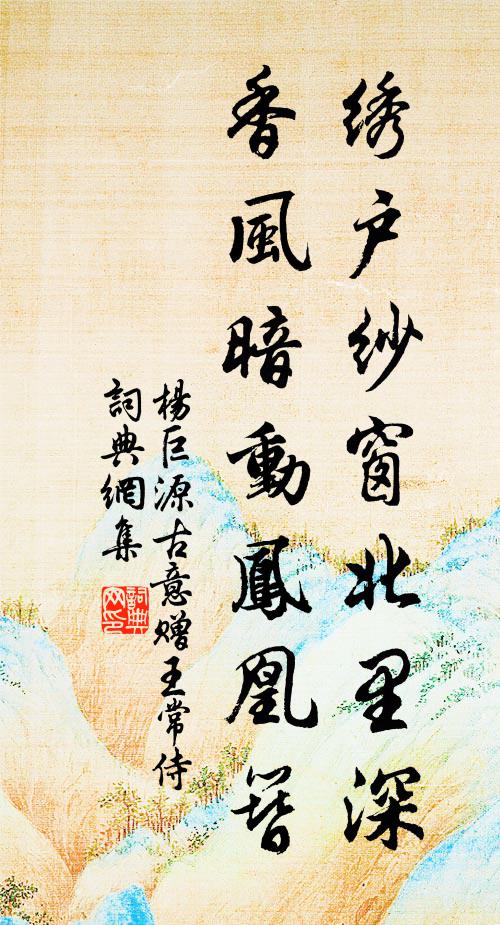 绣户纱窗北里深
香風暗動鳳凰簪
楊巨源古意赠王常侍
詞典網集
詞典
网印